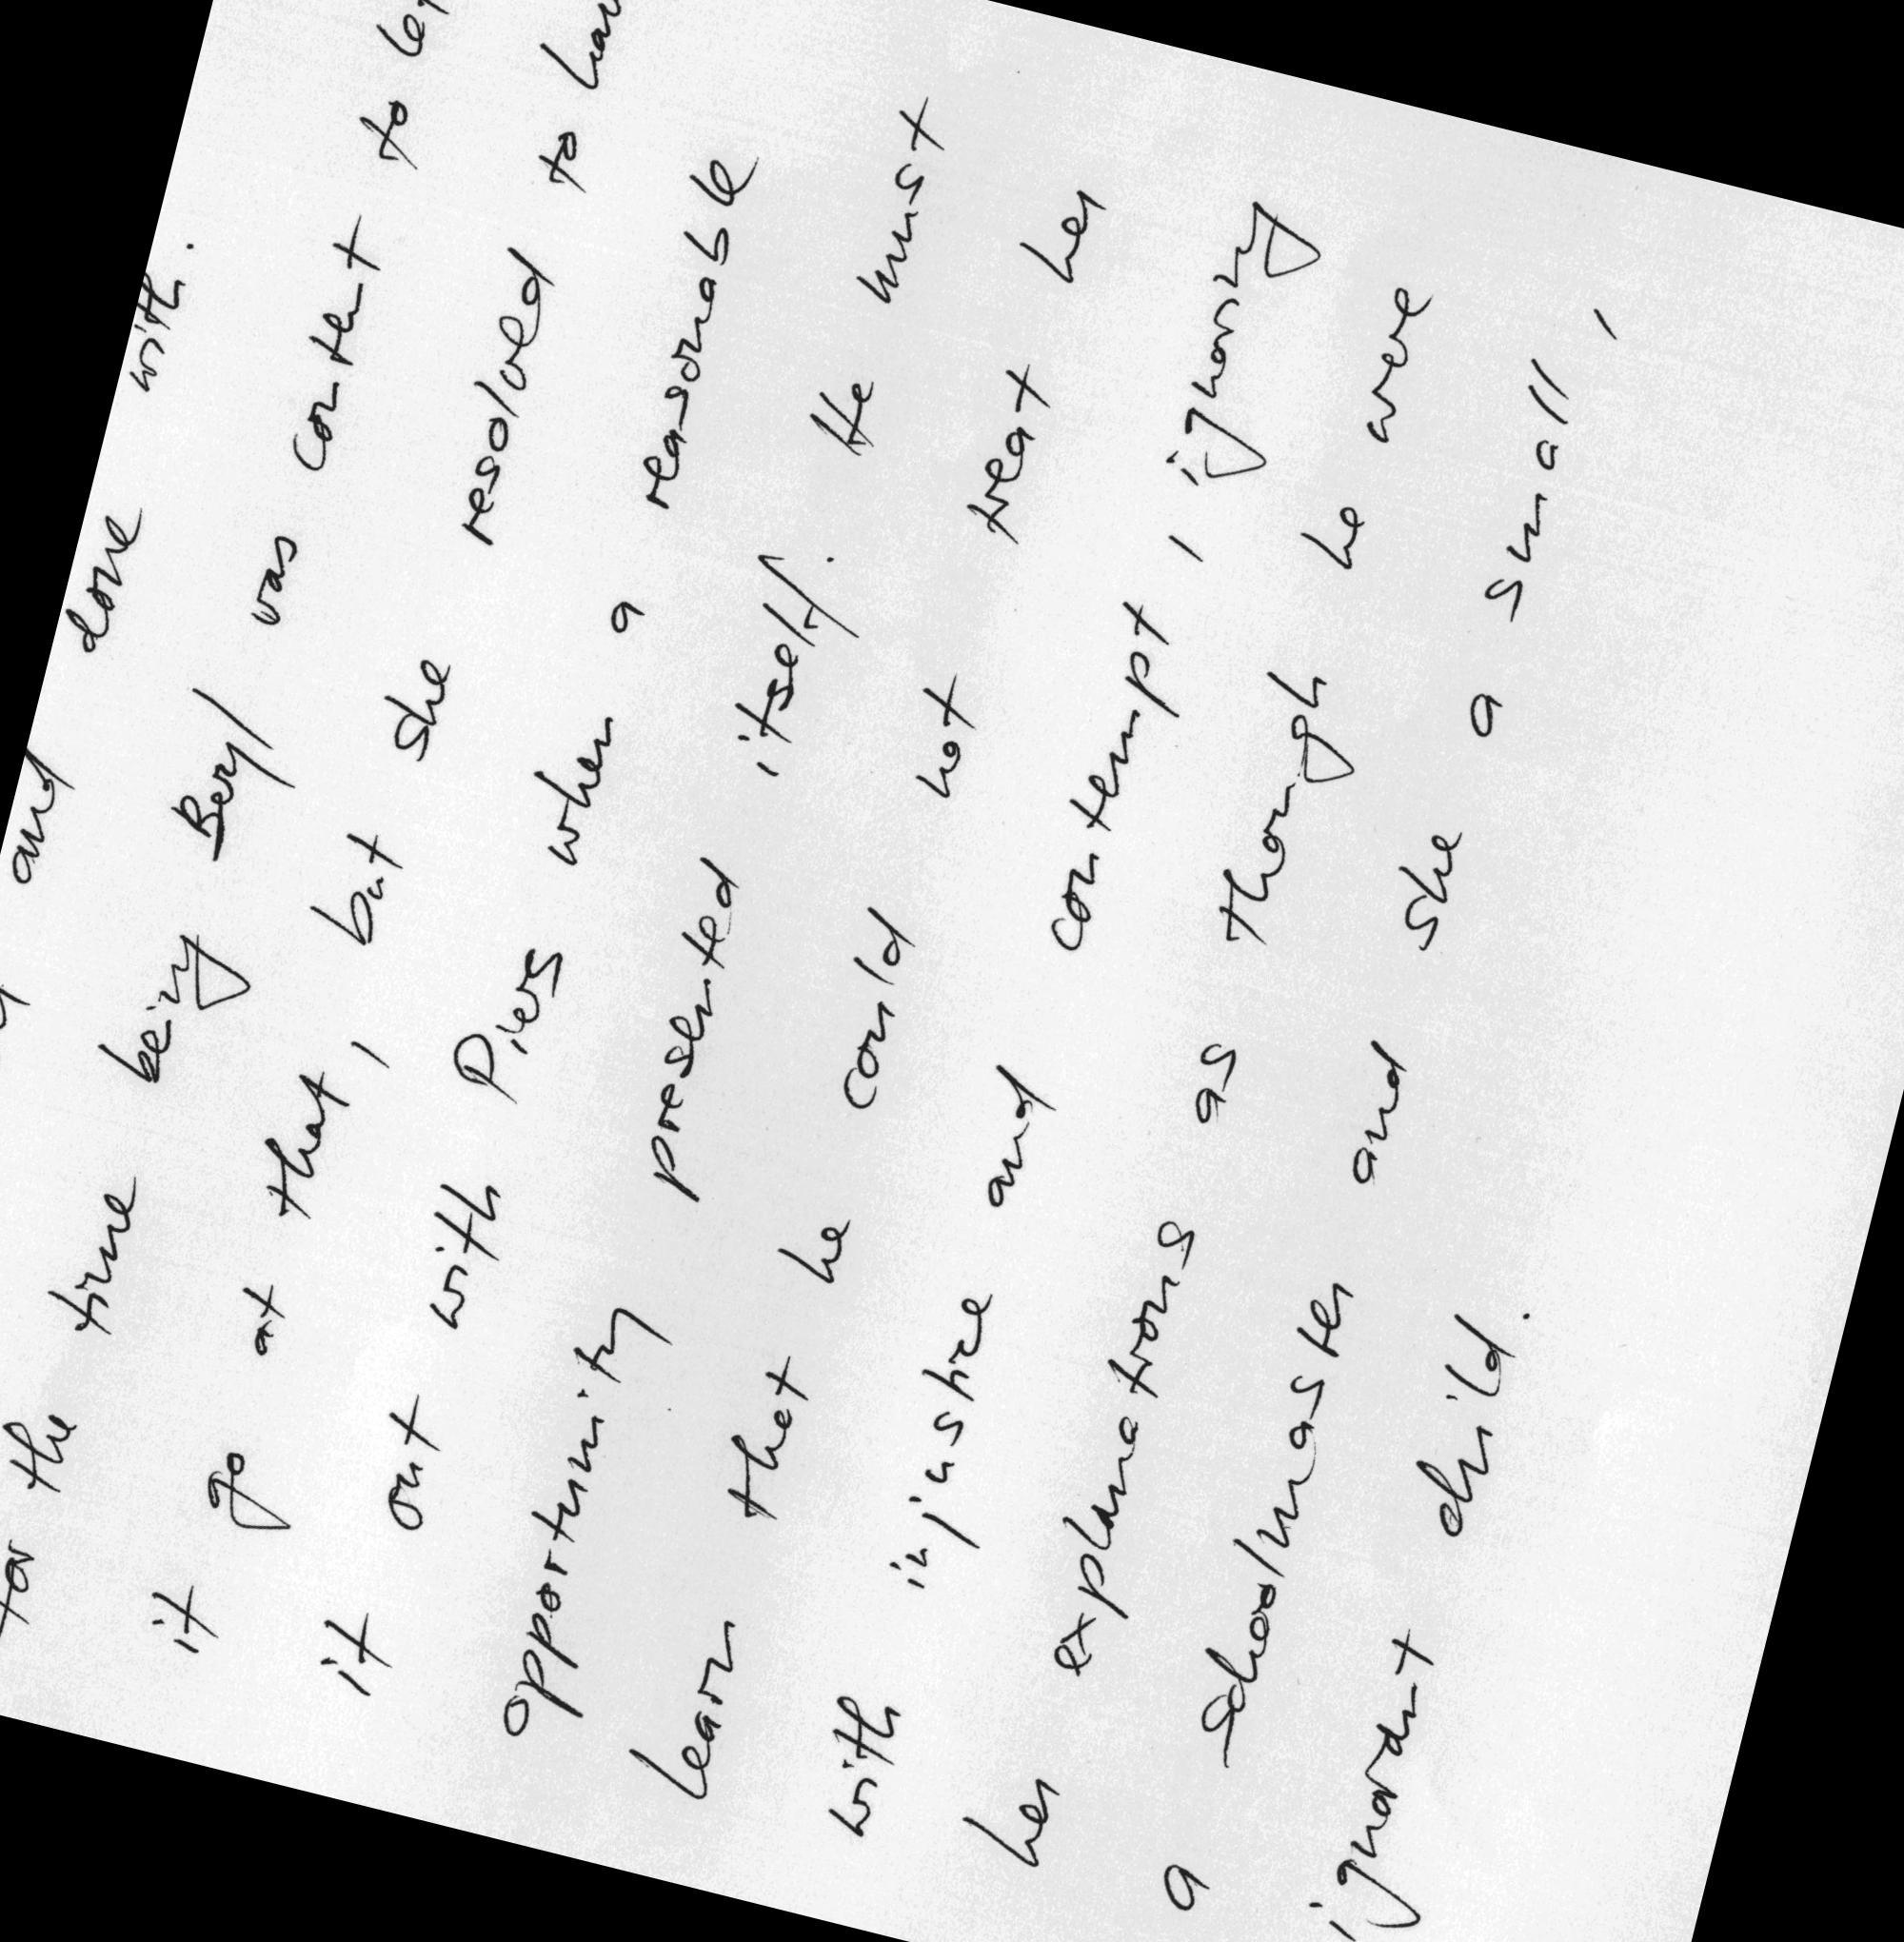 and done with.
for the time being Beryl was content to let
it go at that, but she resolved to have
it out with Piers when a reasonable
opportunity presented itself. He must
learn that he could not treat her
with injustice and contempt, ignoring
her explanations as though he were
a schoolmaster and she a small,
ignorant child.